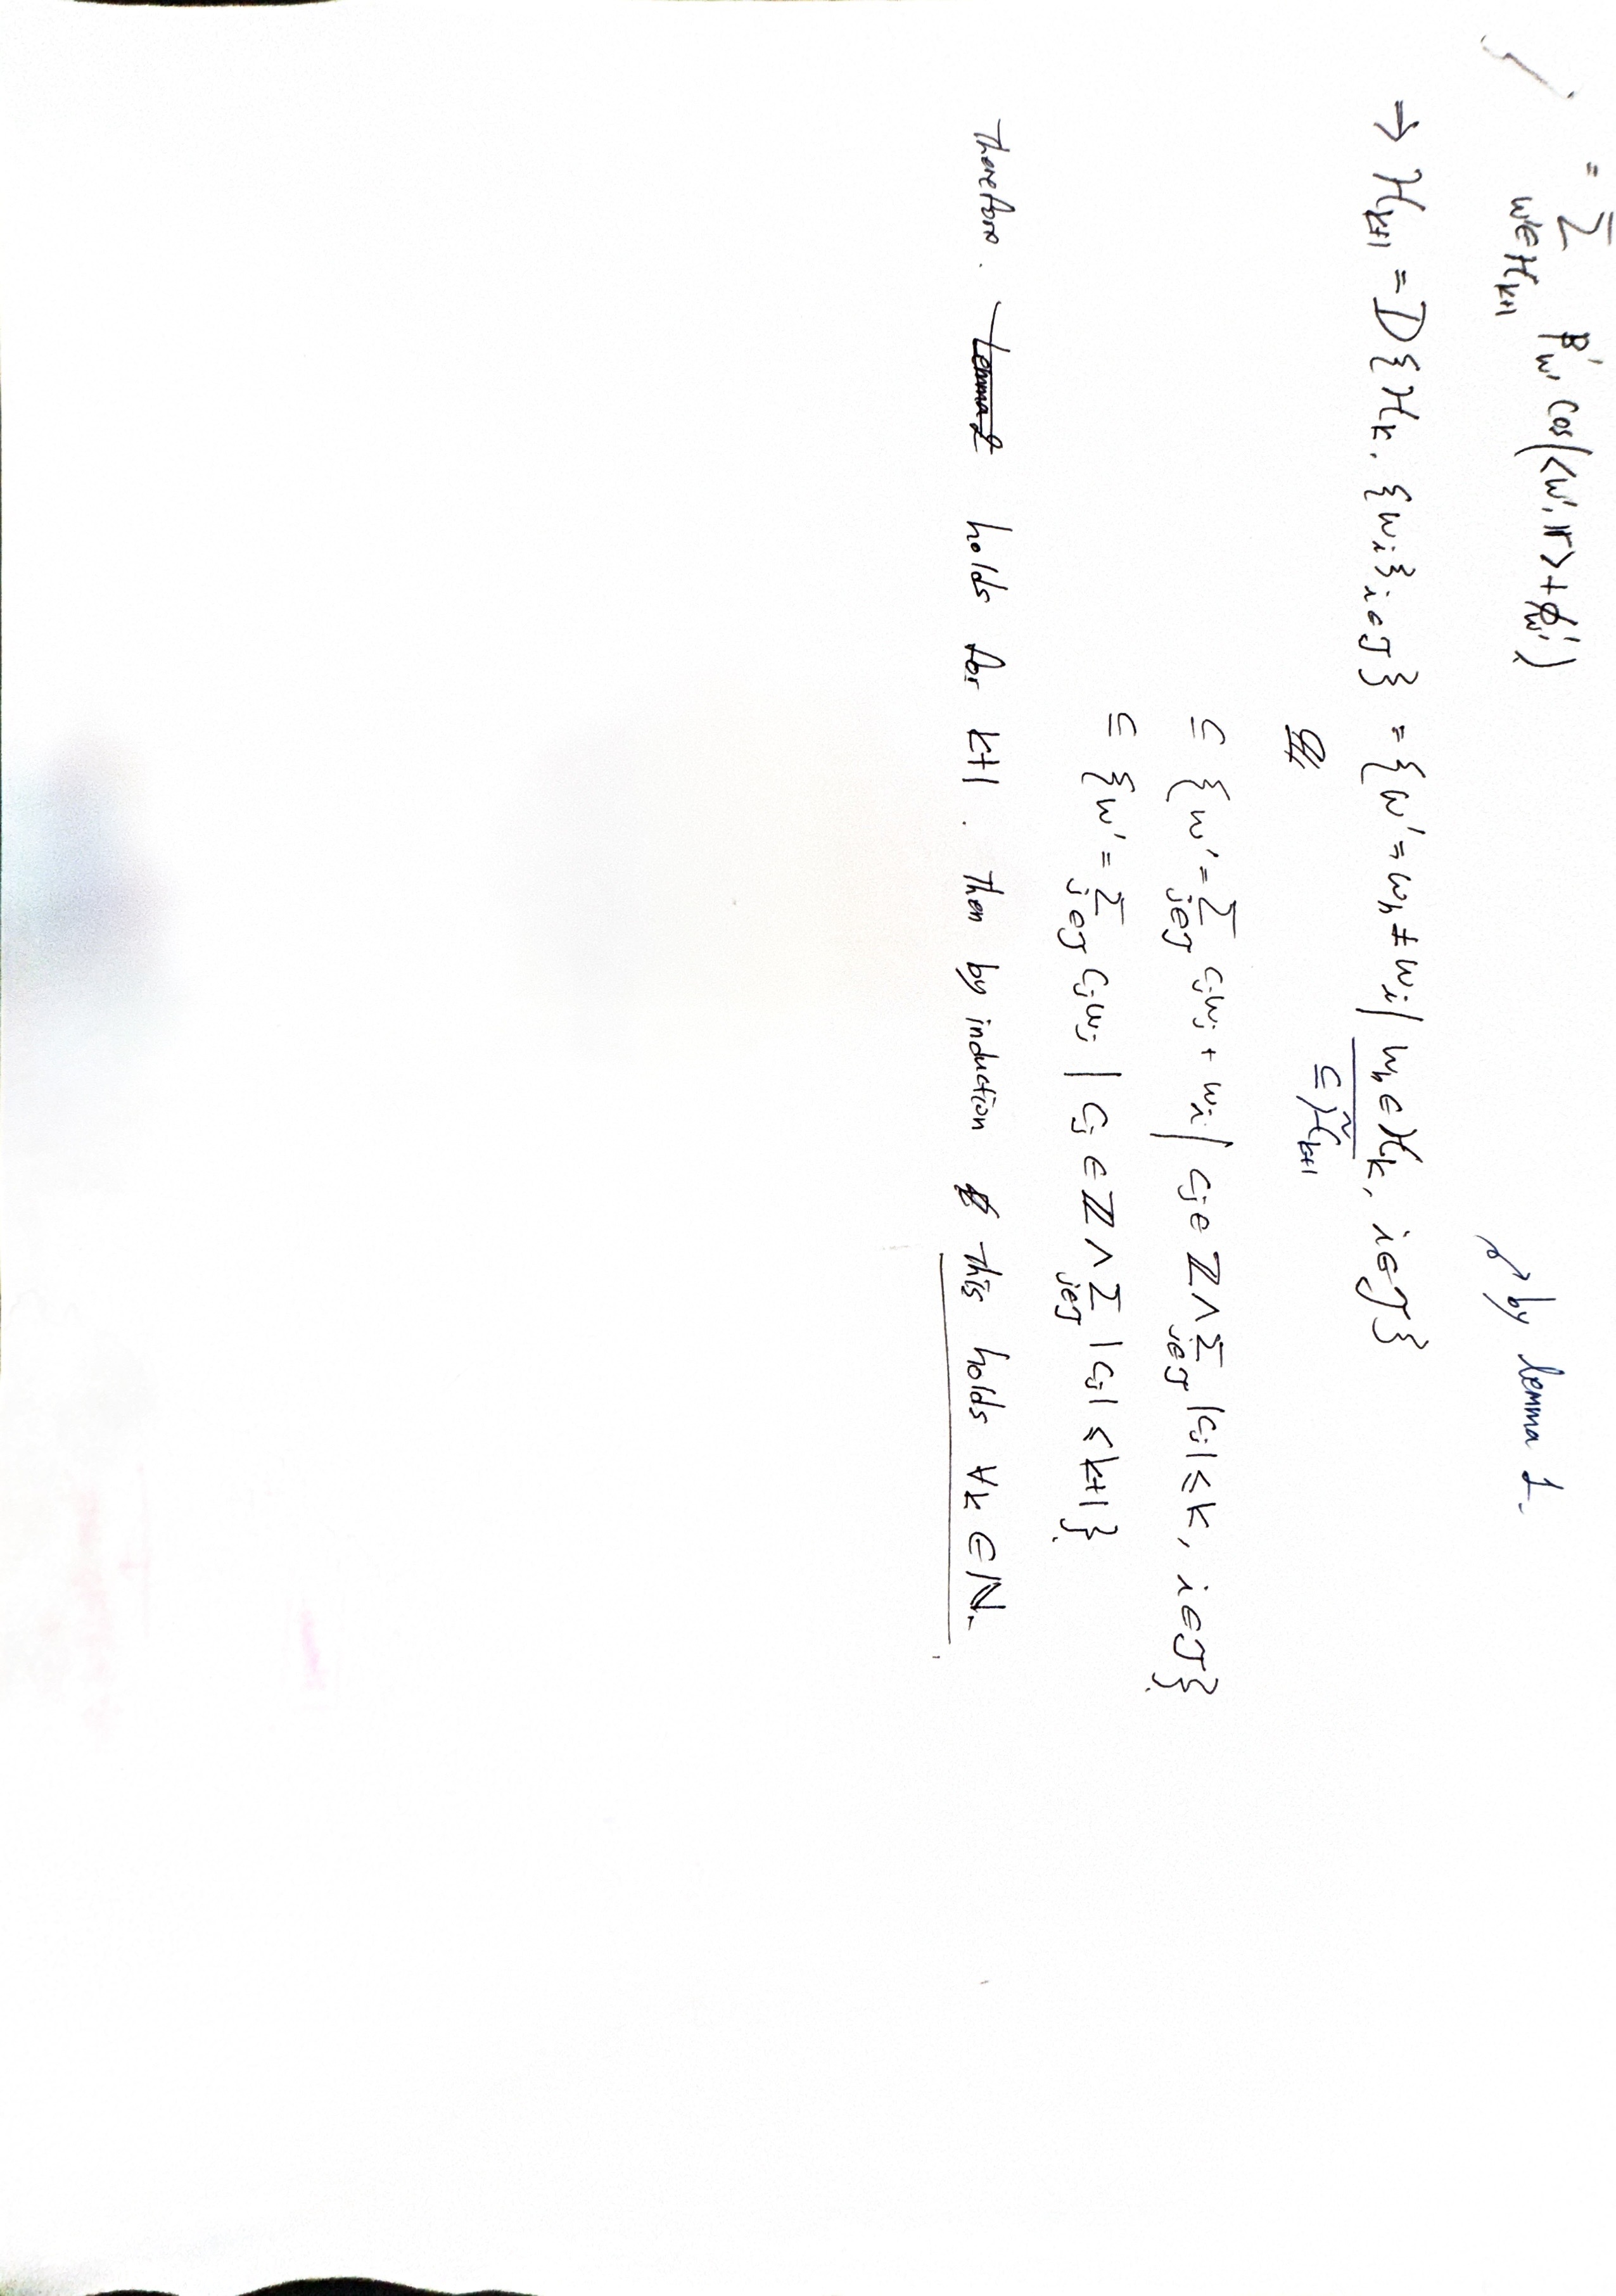 = Σ_{w'∈ℋ_{k+1}} β'_{w'} cos(<w', r> + ϕ'_{w'})
↗ by lemma 1.
⇒ ℋ_{k+1} = D{ℋ_k, {w_i}_{i∈J}} = {w' = w_h ± w_i | w_h ∈ ℋ_k, i∈J}
⊆ ℋ̃_{k+1}
⊆ {w' = Σ_{j∈J} c_j w_j + w_i | c_j ∈ ℤ ∧ Σ_{j∈J} |c_j| ≤ k, i∈J}
⊆ {w' = Σ_{j∈J} c_j w_j | c_j ∈ ℤ ∧ Σ_{j∈J} |c_j| ≤ k+1}.
Therefore. Lemma 2 holds for k+1. Then by induction this holds ∀k ∈ ℕ.